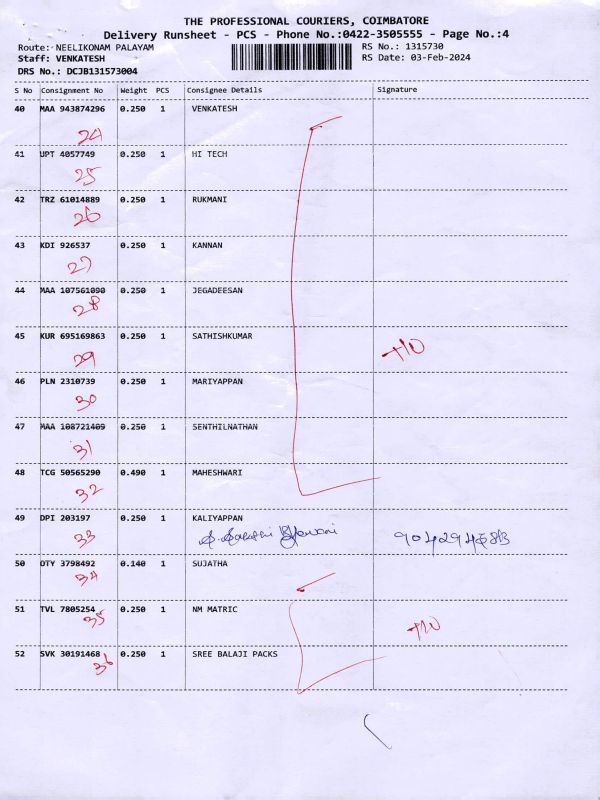 THE PROFESSIONAL COURIERS, COIMBATORE
Delivery Runsheet - PCS - Phone No.:0422-3505555 - Page No.:4
Route: NEELIKONAM PALAYAM
RS No.: 1315730
Staff: VENKATESH
RS Date: 03-Feb-2024
DRS No.: DCJB131573004
S No Consignment No Weight PCS Consignee Details Signature
40 MAA 943874296 0.250 1 VENKATESH
24
41 UPT 4057749 0.250 1 HI TECH
25
42 TRZ 61014889 0.250 1 RUKMANI
26
43 KDI 926537 0.250 1 KANNAN
27
44 MAA 107561090 0.250 1 JEGADEESAN
28
45 KUR 695169863 0.250 1 SATHISHKUMAR
29
46 PLN 2310739 0.250 1 MARIYAPPAN
30
47 MAA 108721409 0.250 1 SENTHILNATHAN
31
48 TCG 50565290 0.490 1 MAHESHWARI
32
49 DPI 203197 0.250 1 KALIYAPPAN
33
50 OTY 3798492 0.140 1 SUJATHA
34
51 TVL 7805254 0.250 1 NM MATRIC
35
52 SVK 30191468 0.250 1 SREE BALAJI PACKS
36